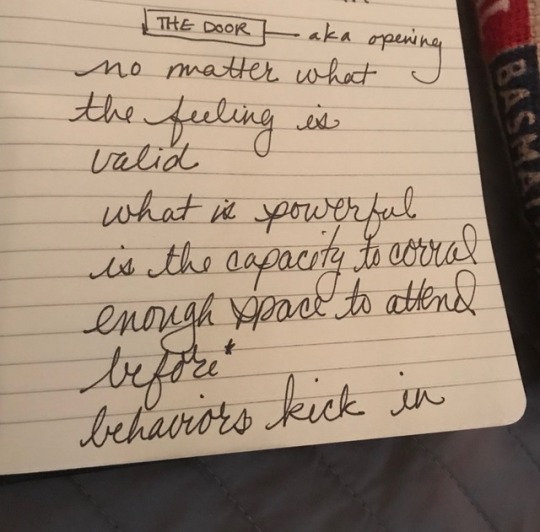 THE DOOR — aka opening
no matter what
the feeling is
valid
what is powerful
is the capacity to corral
enough space to attend
before*
behaviors kick in
BASMA